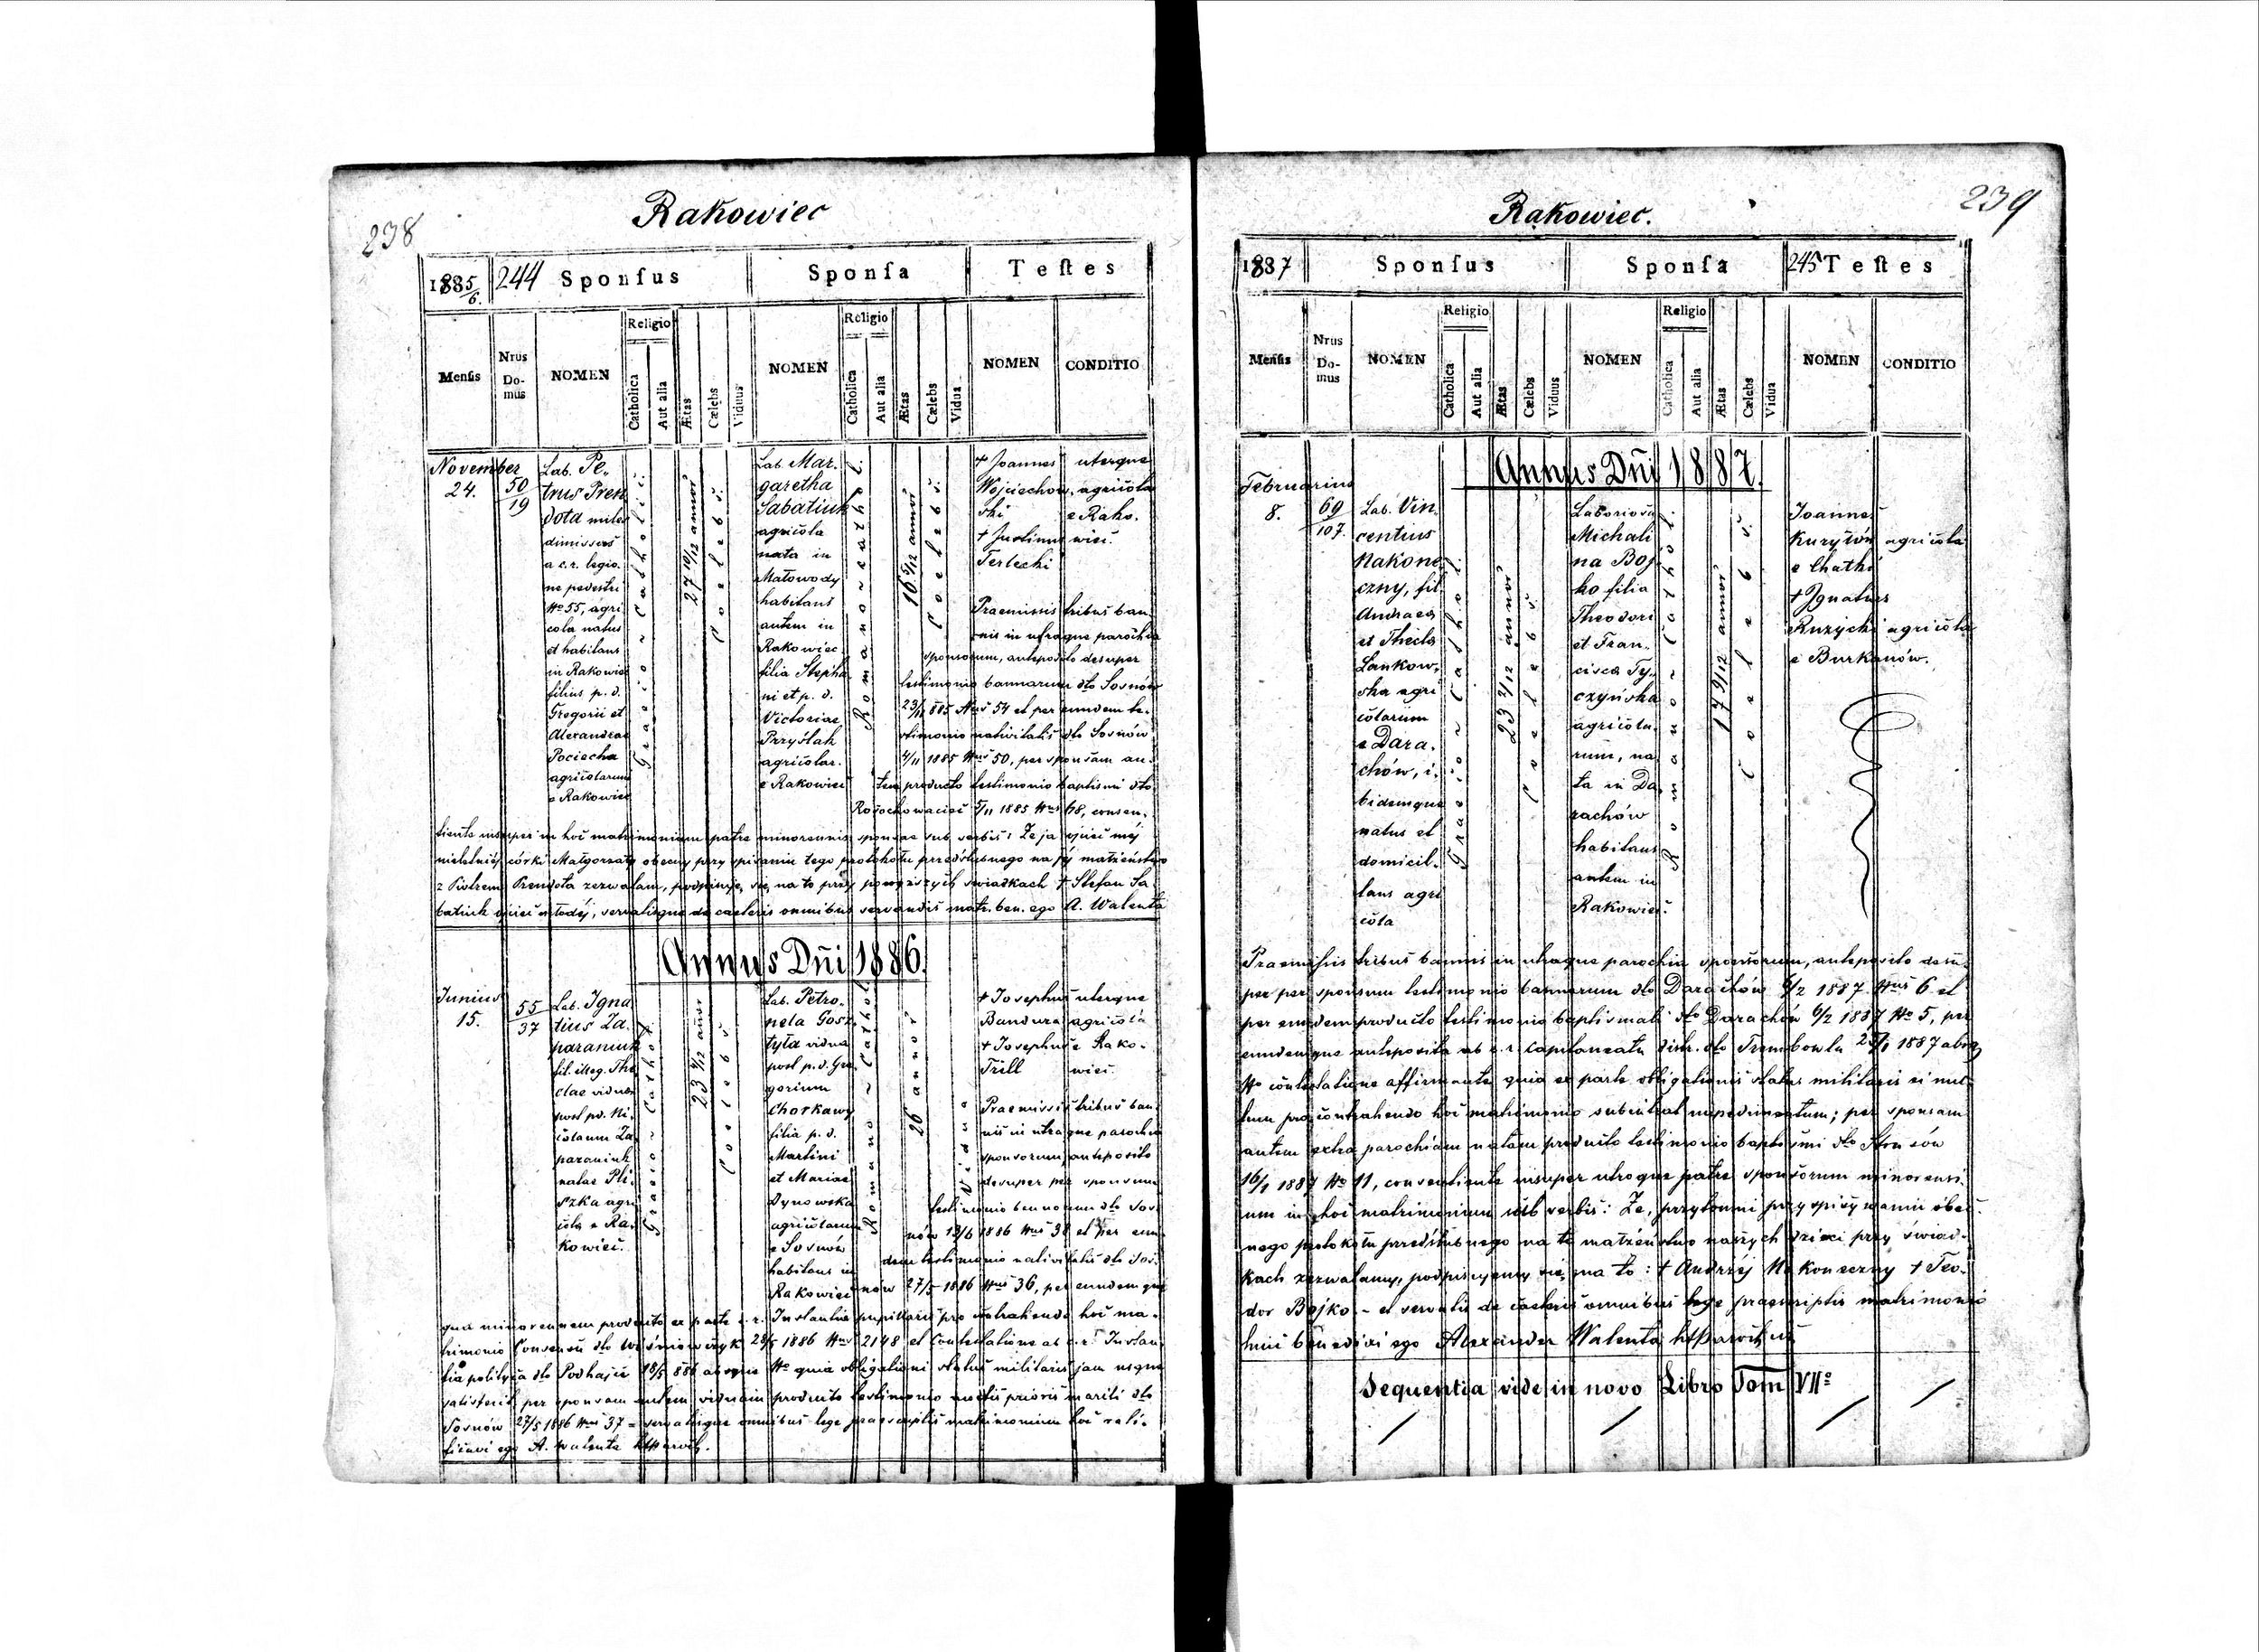 238
Rakowiec
1885/6.
244
Sponſus
Sponſa
Teſtes
Menſis
Nrus Do-mus
NOMEN
Religio
Catholica
Aut alia
Ætas
Cælebs
Viduus
NOMEN
Religio
Catholica
Aut alia
Ætas
Cælebs
Vidua
NOMEN
CONDITIO
November
24.
50
19
Lab. Pe-
trus Pren
dota miles
dimissus
a c.r. legio
ne pedestri
No 55, agri
cola natus
et habitans
in Rakowiec
filius p. d.
Gregorii et
Alexandrae
Pociecha
agricolarum
e Rakowiec
Graeco-Catholici
27 10/12 annor
Coelebs.
Lab. Mar-
garetha
Sabatiuk
agricola
nata in
Małowody
habitans
autem in
Rakowiec
filia Stepha
ni et p. d.
Victoriae
Przyślak
agricolar.
e Rakowiec
Romano-cathol.
16 5/12 annor
Coelebs.
+ Joannes
Wojciechow
ski
+ Justinus
Terlecki
uterque
agricola
e Rako-
wiec.
Praemissis tribus ban
nis in utraque parochia
sponsorum, anteposito desuper
testimonio bannorum dto Sosnów
23/11 885 Nus 54 et per eundem te-
stimonio nativitatis dto Sosnów
4/11 1885 Nus 50, per sponsam au-
tem producto testimonio baptismi dto
5/11 1885 Nus 68, consen-
tiente insuper in hoc matrimonium patre minorennis sponsae sub verbis: Że ja ojciec méj
nieletniéj córki Małgorzaty obecny przy spisaniu tego protokołu przedślubnego na jéj małżeństwo
z Piotrem Prendota zezwalam, podpisuję się na to przy powyższych świadkach + Stefan Sa
batiuk ojciec młodéj, servatisque de caeteris omnibus servandis matr. ben. ego A. Walenta
Annus Dñi 1886.
Junius
15.
55
37
Lab. Igna
tius Za-
paraniuk
fil. illeg. The
clae viduae
post pd. Ni-
colaum Za
paraniuk
natae Pli-
szka agri
cola e Ra-
kowiec.
Graeco-Cathol.
23 4/12 annor
Coelebs
Lab. Petro-
nela Gosz
tyła vidua
post p.d. Gre
gorium
Chorkawy
filia p. d.
Martini
et Mariae
Dynowska
agricolarum
e Sosnów
habitans in
Rakowiec
Romano-Cathol.
26 annor
Vidua
+ Josephus
Bandura
+ Josephus
Trill
uterque
agricola
e Rako-
wiec.
Praemissis tribus ban-
nis in utraque parochia
sponsorum, anteposito
desuper per sponsum
testimonio bannorum dto Sos-
nów 13/6 1886 Nus 38 et per eun-
dem testimonio nativitatis dto Sos-
nów 27/5 1886 Nus 36, per eundemque
qua minorennem producto ex parte c.r. Instantiae pupillaris pro contrahendo hoc ma-
trimonio Consensu dto Wiśniowczyk 28/5 1886 Nus 2148 et Contestatione ab c.r. Instan-
tia politica dto Podhajce 18/5 886 absque No quia obligationi status militaris jam usque
satisfecit, per sponsam autem viduam producto testimonio mortis prioris mariti dto
Sosnów 27/5 1886 Nus 37 = servatisque omnibus lege praescriptis matrimonium hoc rati-
ficavi ego A. Walenta
239
Rakowiec.
1887
Sponſus
Sponſa
245
Teſtes
Menſis
Nrus Do-mus
NOMEN
Religio
Catholica
Aut alia
Ætas
Cælebs
Viduus
NOMEN
Religio
Catholica
Aut alia
Ætas
Cælebs
Vidua
NOMEN
CONDITIO
Annus Dñi 1887.
Februarius
8.
69
107.
Lab. Vin-
centius
Nakone
czny, fil.
Andreae
et Thecla
Lankow-
ska agri
colarum
e Dara-
chów, i-
bidemque
natus et
domicil-
tans agri
cola
Graeco-Cathol.
23 2/12 annor
Coelebs.
Laboriosa
Michali
na Boj
ko filia
Theodori
et Fran-
cisca Ty-
czyńska
agricola-
rum, na
ta in Da
rachów
habitans
autem in
Rakowiec.
Romano-Cathol.
17 9/12 annor
Coelebs.
Joannes
Kuryłów
e Chatki
+ Ignatius
Ruzycki
e Burkanów.
agricola
agricola
Praemissis tribus bannis in utraque parochia sponsorum, anteposito desu-
per per sponsum testimonio bannorum dto Darachów 6/2 1887 Nus 6 et
per eundem producto testimonio baptismali dto Darachów 6/2 1887 No 5, per
eundemque anteposita ab c. r. Capitaneatu distr. dto Trembowla 1887 absq
No contestatione affirmante quia ex parte obligationis status militaris ei nul-
lum pro contrahendo hoc matrimonio subintrat impedimentum; per sponsam
autem extra parochiam natam producto testimonio baptismi dto
16/1 1887 No 11, consentiente insuper utroque patre sponsorum minorensi-
um in hoc matrimonium sub verbis: Że, przytomni przy spisywaniu obec-
nego protokołu przedślubnego na to małżeństwo naszych dzieci przy świad-
kach zezwalamy, podpisujemy się na to: + Andrzéj Nakoneczny + Teo-
dor Bojko - et servatis de caeteris omnibus lege praescriptis matrimonio
huic benedixi ego Alexander Walenta
Sequentia vide in novo Libro Tom VIIo